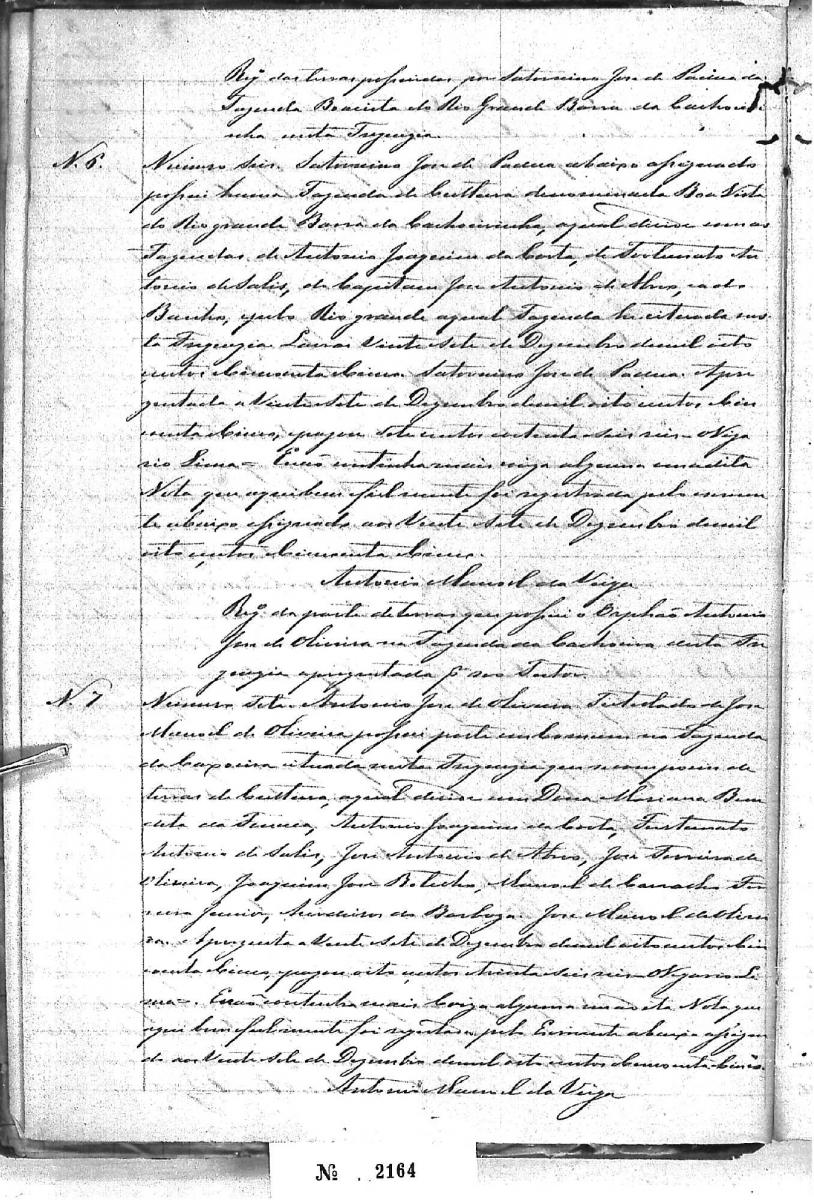 Reg.º das terras possuidas por Satornino Jose de Padua da
Fazenda Boavista do Rio Grande Barra da Cachoeiri
nha nesta Freguezia
N. 6. Numero seis. Satornino Jose de Padua abaixo assignado
possui huma Fazenda de Cultura denominada Boa Vista
do Rio grande Barra da Cachoeirinha, aqual divise com as
Fazendas, de Antonio Joaquim da Costa, de Fortunato An
tonio de Salis, do Capitam Jose Antonio de Alves, e a do
Buriti, e pelo Rio grande aqual Fazenda he citurada nes
ta Freguezia Lavra Vinte Sete de Dezembro demil oito
centos Cincoenta Cinco. Satornino Jose de Padua. Apre
zentada a Vinte Sete de Dezembro demil oito centos Cin
coenta Cinco, e pagou Sete centos e seis reis. O Viga
rio Lima = E não continha mais coiza alguma em a dita
Nota que aqui bem e fielmente foi registrada pelo escreven
te abaixo assignado aos Vinte Sete de Dezembro demil
oito centos Cincoenta Cinco.
Antonio Manoel da Veiga
Reg.º da parte de terras que possui o Orphão Antonio
Jose de Oliveira na Fazenda da Cachoeira desta Fre
guezia aprezentada p. seo Tutor.
N. 7 Numero Sete. Antonio Jose de Oliveira Tutelado de Jose
Manoel de Oliveira possui parte em Comum na Fazenda
da Caxoeira cituada nesta Freguezia que se compoem de
terras de Cultura, aqual divise com Dona Mariana Bene
dita da Fonseca, Antonio Joaquim da Costa, Fortunato
Antonio de Salis, Jose Antonio de Alves, Jose Ferreira de
Oliveira, Joaquim Jose Botelho, Manoel de Carvalho Fer
reira Junior, Herdeiros do Barboza. Jose Manoel de Olivei
ra. Aprezenta a Vinte Sete de Dezembro demil oito centos Cin
coenta Cinco, pagou oito centos trinta seis reis. O Vigario Li
ma =. E não continha mais Coiza alguma em a dita Nota que
aqui bem fielmente foi registada pelo Escrevente abaixo assigna
do aos Vinte Sete de Dezembro demil oito centos Cincoenta Cinco.
Antonio Manoel da Veiga
Nº . 2164